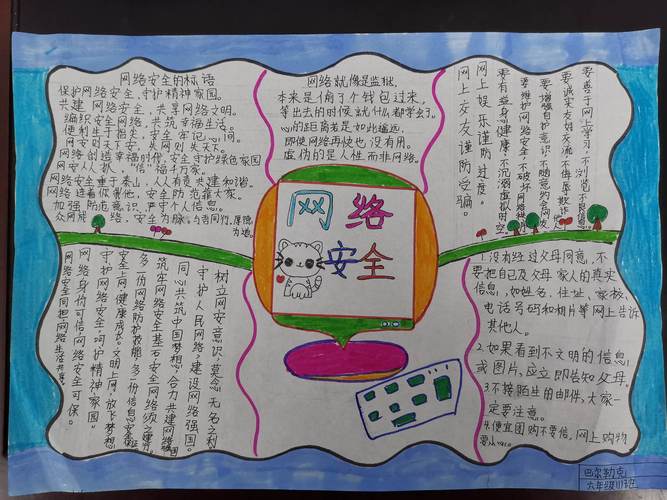 网络安全的标语
保护网络安全,守护精神家园。
共建网络安全,共享网络文明。
编织安全网络,共筑幸福生活。
便利生于指尖,安全牢记心间。
网安则天下安,失网则失天下。
网络创造幸福时代,安全守护绿色家园
网安人人抓,“信”福千万家。
网络安全重于泰山,人人有责共建和谐。
网络连着你我他,安全防范靠大家。
加强防范意识,严守个人信息。
网络就像是监狱,
本来是偷了个钱包进来,
等出去的时候就什么都学会了。
心的距离若是如此遥远,
即使网络再快也没有用。
虚伪的是人性而非网络。
要善于网上学习,不浏览不良信息
要诚实友好交流,不侮辱欺诈他人
要增强自护意识,不随意约会网友
要维护网络安全,不破坏网络秩序
要有益身心健康,不沉溺虚拟时空
网上娱乐谨防过度。
网上交友谨防受骗。
网络
安全
树立网安意识,莫念无名之利
守护人民网络,建设网络强国。
同心共筑中国梦想,合力共建网络强国
筑牢网络安全基石,安全网络须之
多一份网络防护技能,多一份信息安全
安全上网,健康成长。文明上网,放飞梦想
守护网络安全,呵护精神家园。
网络身份可信,网络安全可保。
网络安全同担,网络生活共享。
1.没有经过父母同意,不
要把自己及父母家人的真实
信息,如姓名、住址、学校、
电话号码和相片等网上告诉
其他人。
2.如果看到不文明的信息
或图片,应立即告知父母。
3.不接陌生的邮件,大家一
定要注意。
4.便宜团购不要信,网上购物
要
巴尔勒克
六年级111班